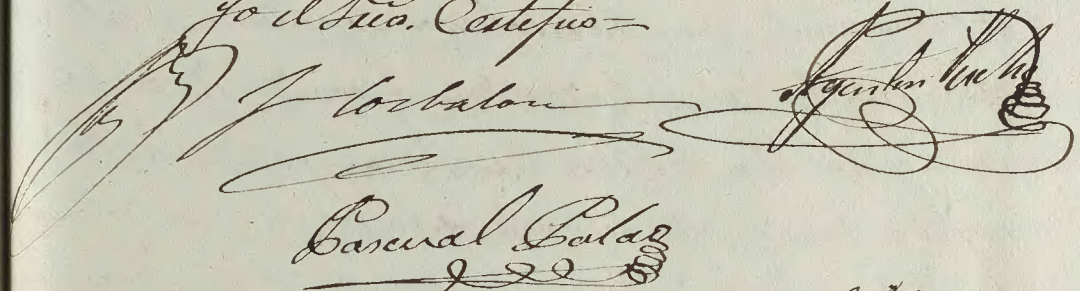 yo el Srio. Certifico=
J Corbalan Agustin
Pascual Palao